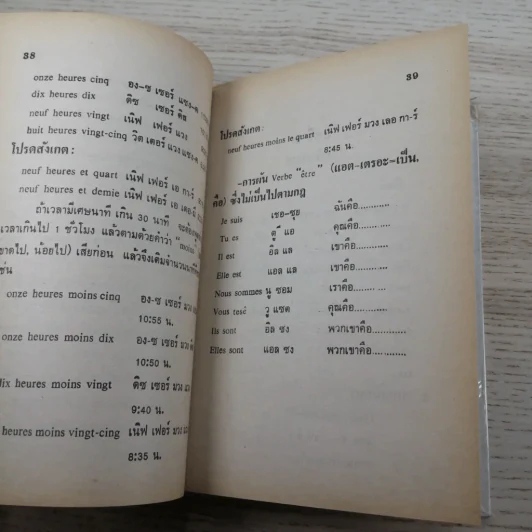 38
onze heures cinq อง-ซ เซอร์ แซง-ค
dix heures dix ดิซ เซอร์ ดิส
neuf heures vingt เนิฟ เฟอร์ แวง
huit heures vingt-cinq วิต เตอร์ แวง แซง-ค
โปรดสังเกต:
neuf heures et quart เนิฟ เฟอร์ เอ กา-ร์
neuf heures et demie เนิฟ เฟอร์ เอ เดอ-มี
ถ้าเวลามีเศษนาที เกิน 30 นาที จะต้อง
เวลาเกินไป 1 ชั่วโมง แล้วตามด้วยคำว่า "moins"
ขาดไป, น้อยไป) เสียก่อน แล้วจึงเติมจำนวนนาที
เช่น
onze heures moins cinq อง-ซ เซอร์ มวง
10:55 น.
onze heures moins dix อง-ซ เซอร์ มวง
10:50 น.
dix heures moins vingt ดิซ เซอร์ มวง แวง
9:40 น.
heures moins vingt-cinq เนิฟ เฟอร์ มวง
8:35 น.
39
โปรดสังเกต:
neuf heures moins le quart เนิฟ เฟอร์ มวง เลอ กา-ร์
8:45 น.
-การผัน Verbe "être" (แอต-เตรอะ-เป็น,
คือ) ซึ่งไม่เป็นไปตามกฎ
Je suis เชอ-ซุย ฉันคือ............
Tu es ตู แอ คุณคือ............
Il est อิล แล เขาคือ............
Elle est แอล แล เขาคือ............
Nous sommes นู ซอม เราคือ............
Vous tesé วู แซต คุณคือ............
Ils sont อิล ซง พวกเขาคือ............
Elles sont แอล ซง พวกเขาคือ............